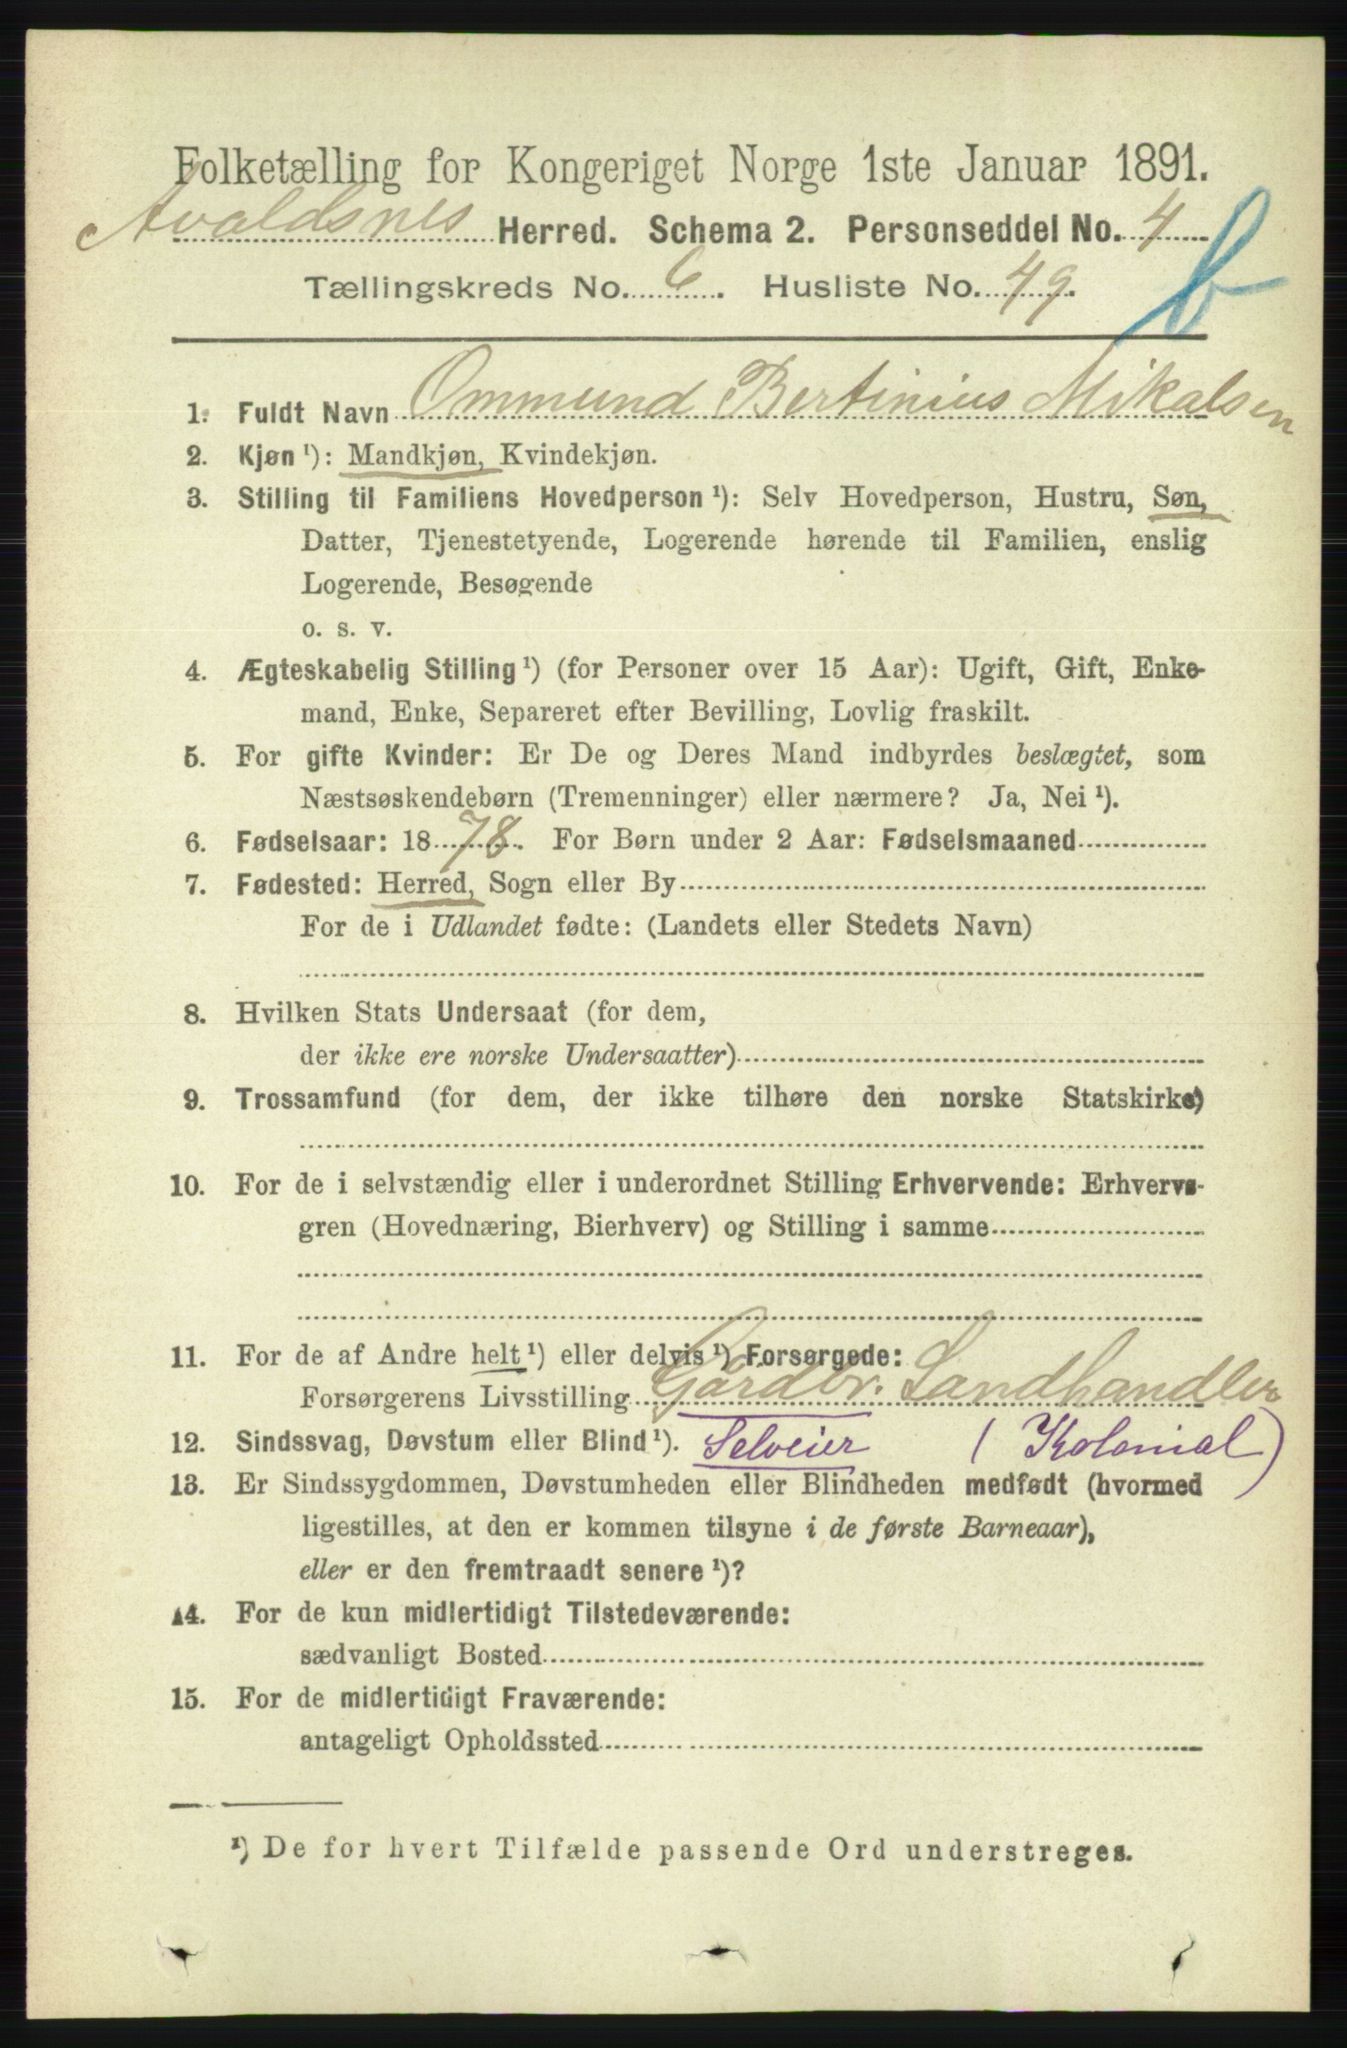 Folketælling for Kongeriget Norge 1ste Januar 1891.
Avaldsnes Herred. Schema 2. Personseddel No. 4
Tællingskreds No. 6. Husliste No. 49.
b
1. Fuldt Navn Ommund Bertinius Mikalsen
2. Kjøn ¹): Mandkjøn, Kvindekjøn.
3. Stilling til Familiens Hovedperson ¹): Selv Hovedperson, Hustru, Søn,
Datter, Tjenestetyende, Logerende hørende til Familien, enslig
Logerende, Besøgende
o. s. v.
4. Ægteskabelig Stilling ¹) (for Personer over 15 Aar): Ugift, Gift, Enke-
mand, Enke, Separeret efter Bevilling, Lovlig fraskilt.
5. For gifte Kvinder: Er De og Deres Mand indbyrdes beslægtet, som
Næstsøskendebørn (Tremenninger) eller nærmere? Ja, Nei ¹).
6. Fødselsaar: 1878. For Børn under 2 Aar: Fødselsmaaned
7. Fødested: Herred, Sogn eller By
For de i Udlandet fødte: (Landets eller Stedets Navn)
8. Hvilken Stats Undersaat (for dem,
der ikke ere norske Undersaatter)
9. Trossamfund (for dem, der ikke tilhøre den norske Statskirke)
10. For de i selvstændig eller i underordnet Stilling Erhvervende: Erhvervs-
gren (Hovednæring, Bierhverv) og Stilling i samme
11. For de af Andre helt ¹) eller delvis ¹) Forsørgede:
Forsørgerens Livsstilling Gårdbr. Landhandler
12. Sindssvag, Døvstum eller Blind ¹). Selveier (Kolonial)
13. Er Sindssygdommen, Døvstumheden eller Blindheden medfødt (hvormed
ligestilles, at den er kommen tilsyne i de første Barneaar),
eller er den fremtraadt senere ¹)?
14. For de kun midlertidigt Tilstedeværende:
sædvanligt Bosted
15. For de midlertidigt Fraværende:
antageligt Opholdssted
¹) De for hvert Tilfælde passende Ord understreges.